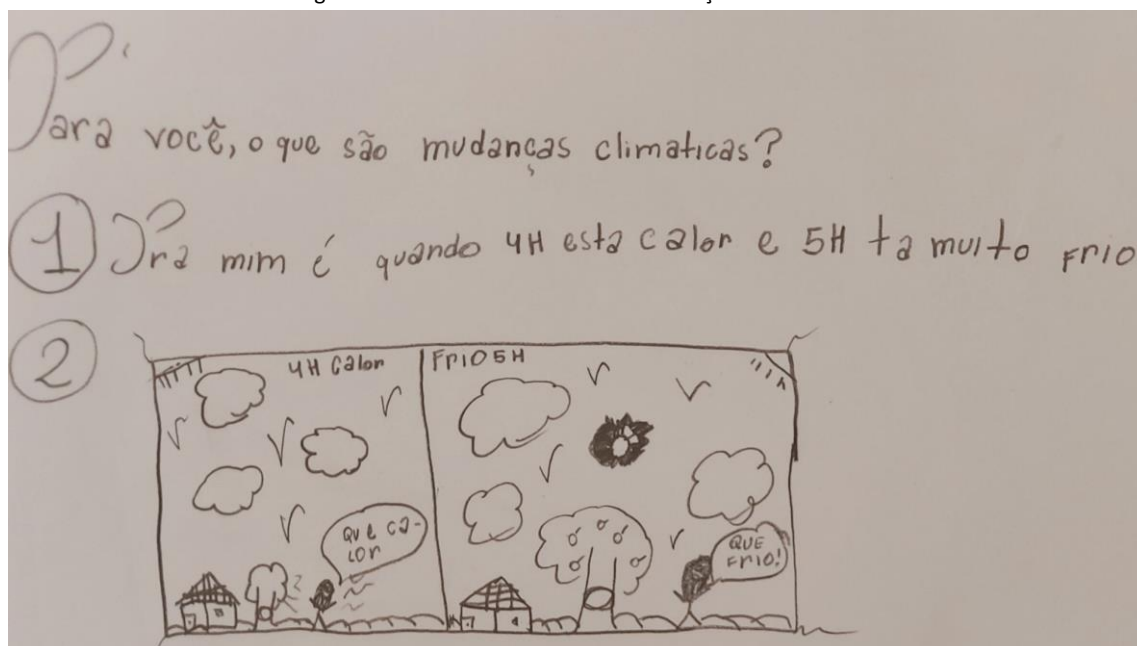 Para você, o que são mudanças climaticas?
1 Pra mim é quando 4H esta calor e 5H ta muito frio
2
4H Calor
Frio 5H
Que ca-
lor
QUE
Frio!